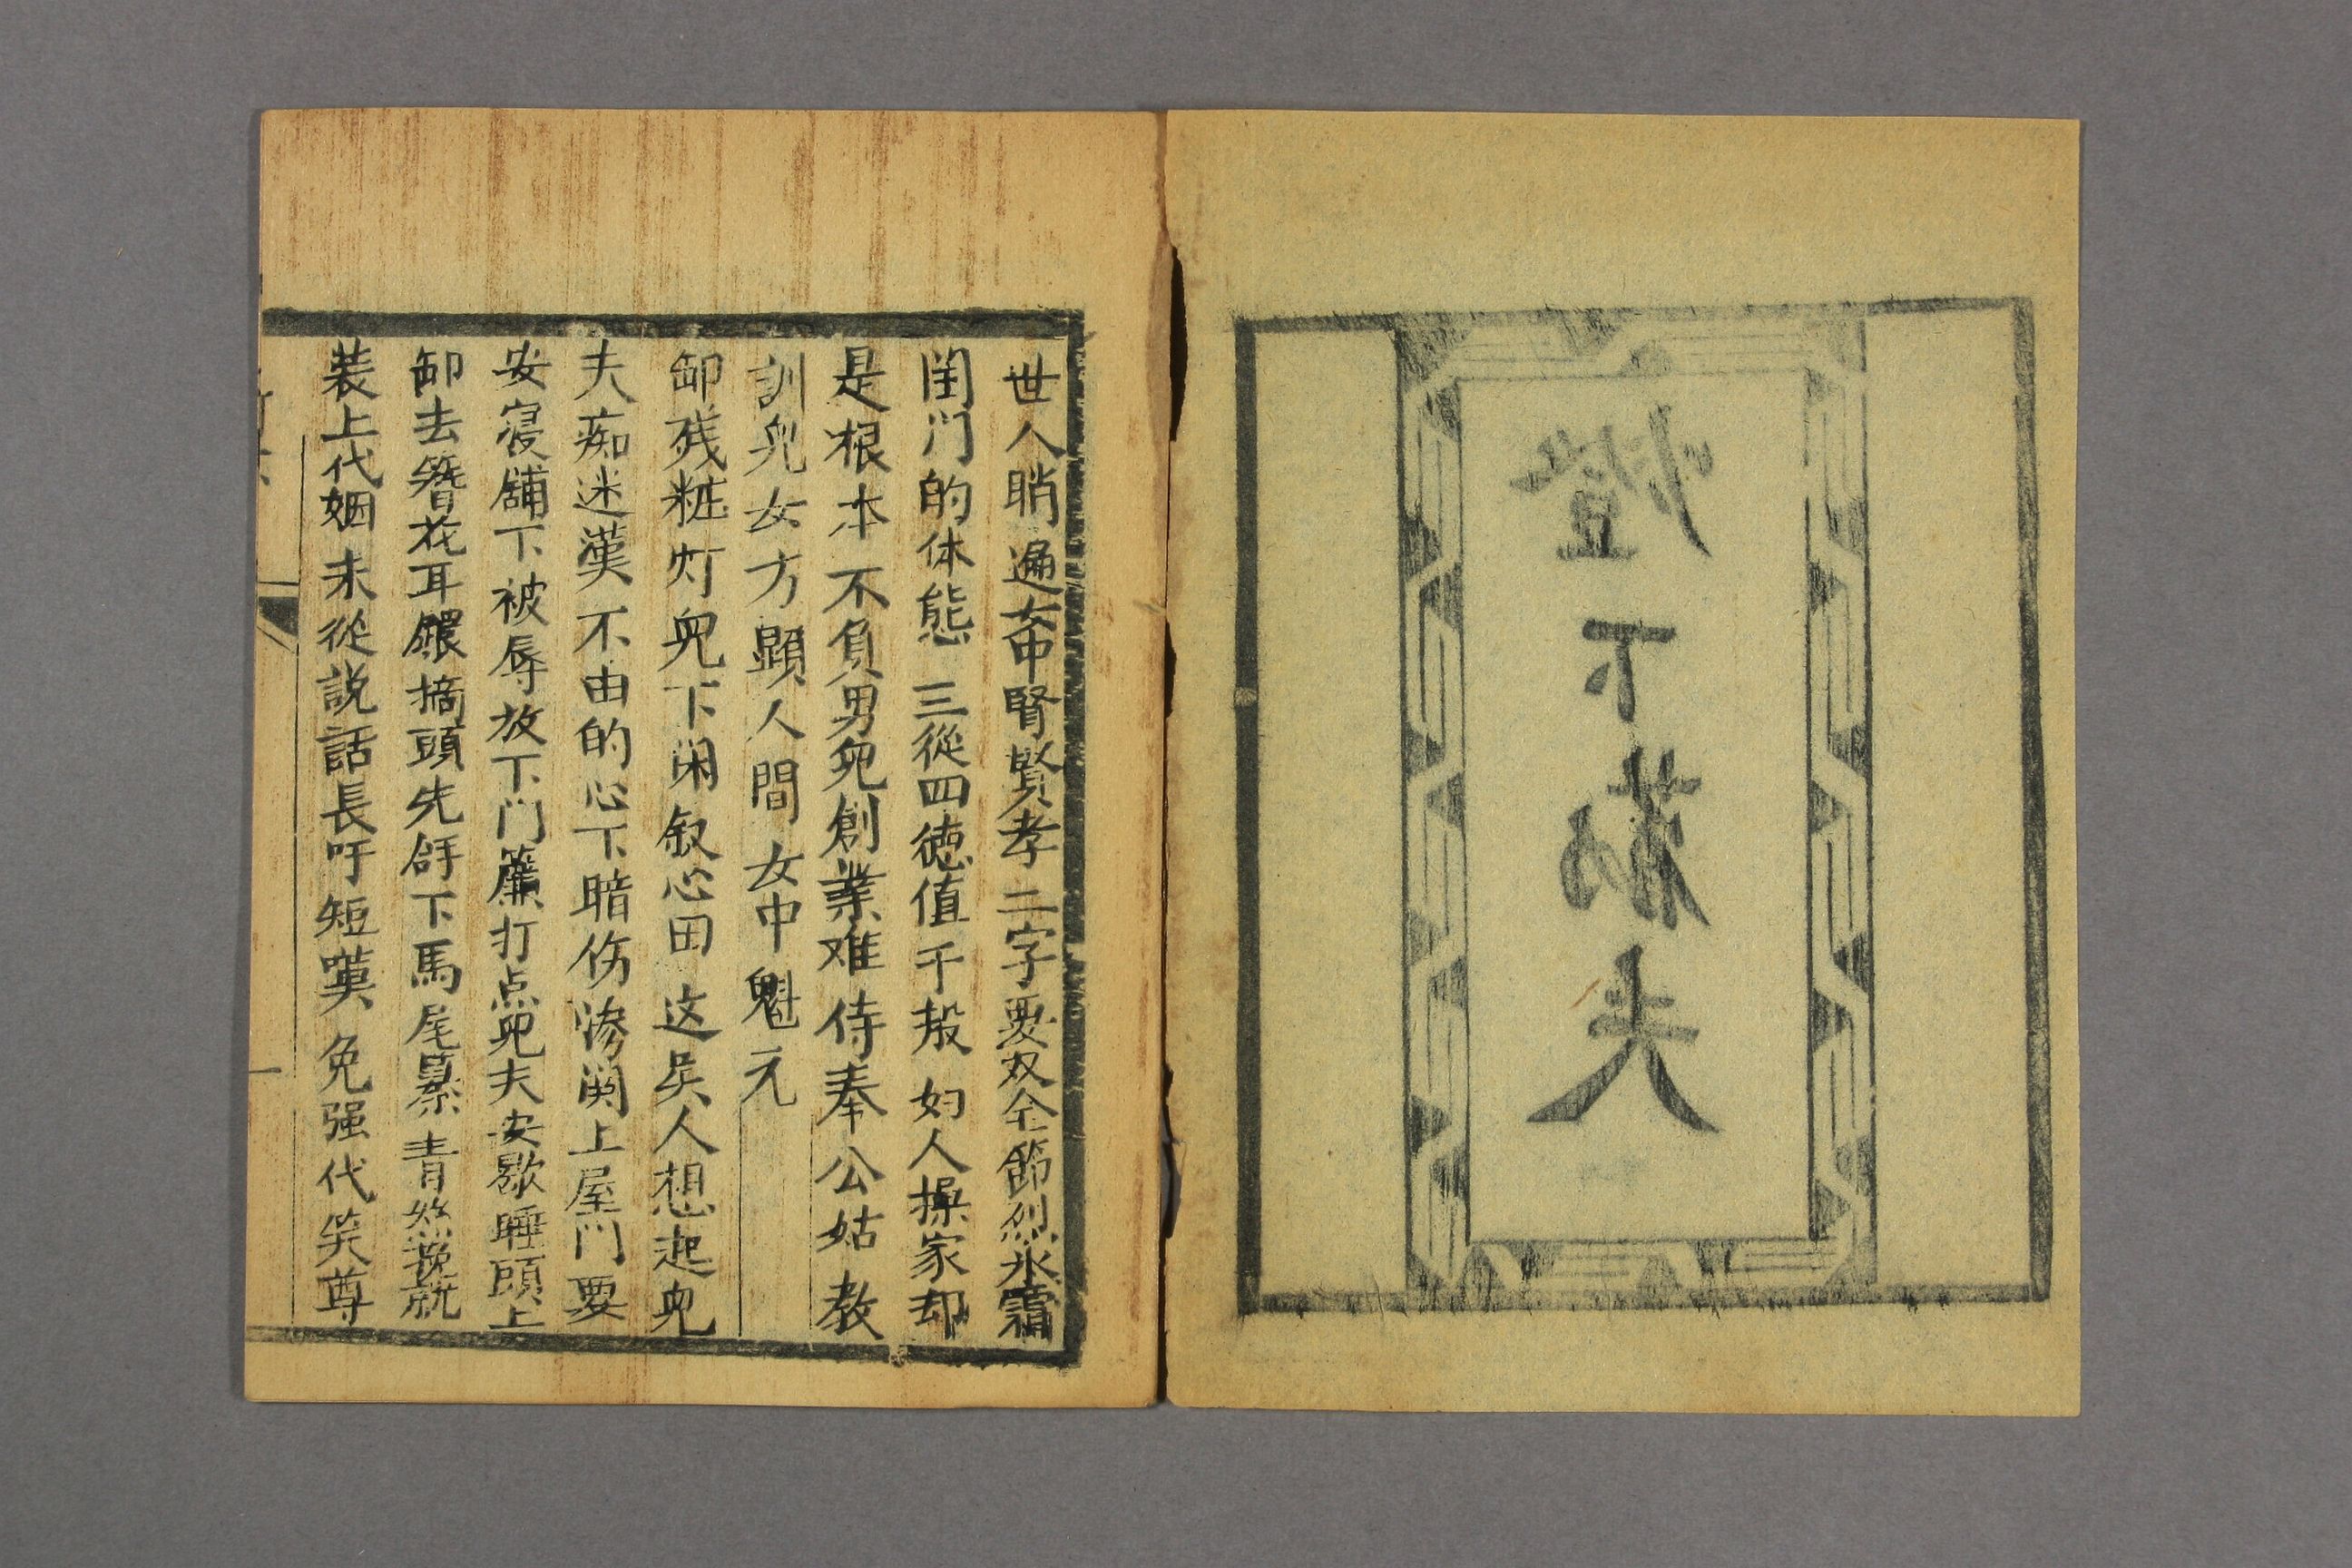 燈下勸夫
世人睄遍女中腎賢孝二字要双全節烈氷霜
閨门的体態三從四徳值千般妇人操家却
是根本不負男兒創業难侍奉公姑教
訓兒女方顕人間女中魁元
卸残粧灯兒下闲叙心田这吴人想起兒
夫痴迷漢不由的心下暗伤渗関上屋门要
安寝舖下被辱放下门簾打点兒夫安歇睡頭上
卸去簪花耳鐶摘頭先舒下馬尾纂青絲挽就
装上代姻未從説話長吁短嘆免强代笑尊